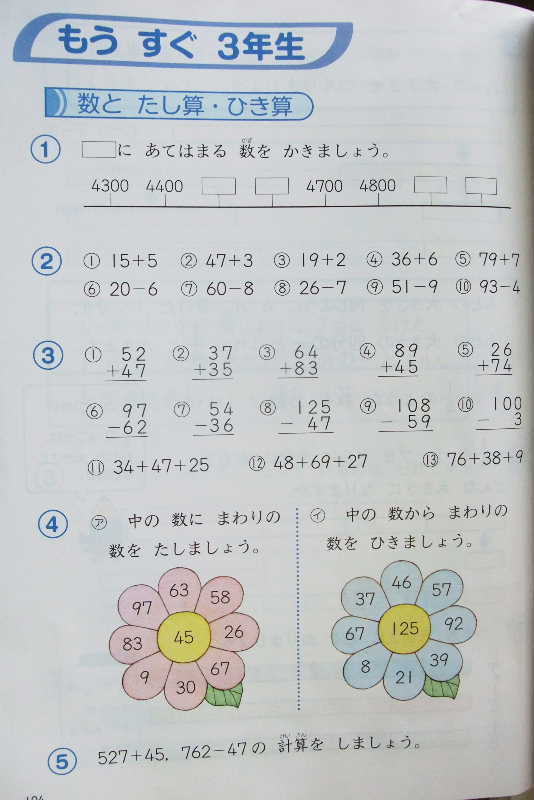 もう すぐ 3年生
数と たし算・ひき算
1 □に あてはまる 数を かきましょう。
4300 4400 □ □ 4700 4800 □ □
2 ① 15+5 ② 47+3 ③ 19+2 ④ 36+6 ⑤ 79+7
⑥ 20-6 ⑦ 60-8 ⑧ 26-7 ⑨ 51-9 ⑩ 93-4
3 ① 52 ② 37 ③ 64 ④ 89 ⑤ 26
+47 +35 +83 +45 +74
⑥ 97 ⑦ 54 ⑧ 125 ⑨ 108 ⑩ 100
-62 -36 - 47 - 59 - 3
⑪ 34+47+25 ⑫ 48+69+27 ⑬ 76+38+9
4 ㋐ 中の 数に まわりの
数を たしましょう。
63
97 58
83 45 26
9 67
30
㋑ 中の 数から まわりの
数を ひきましょう。
46
37 57
67 125 92
8 39
21
5 527+45, 762-47の 計算を しましょう。